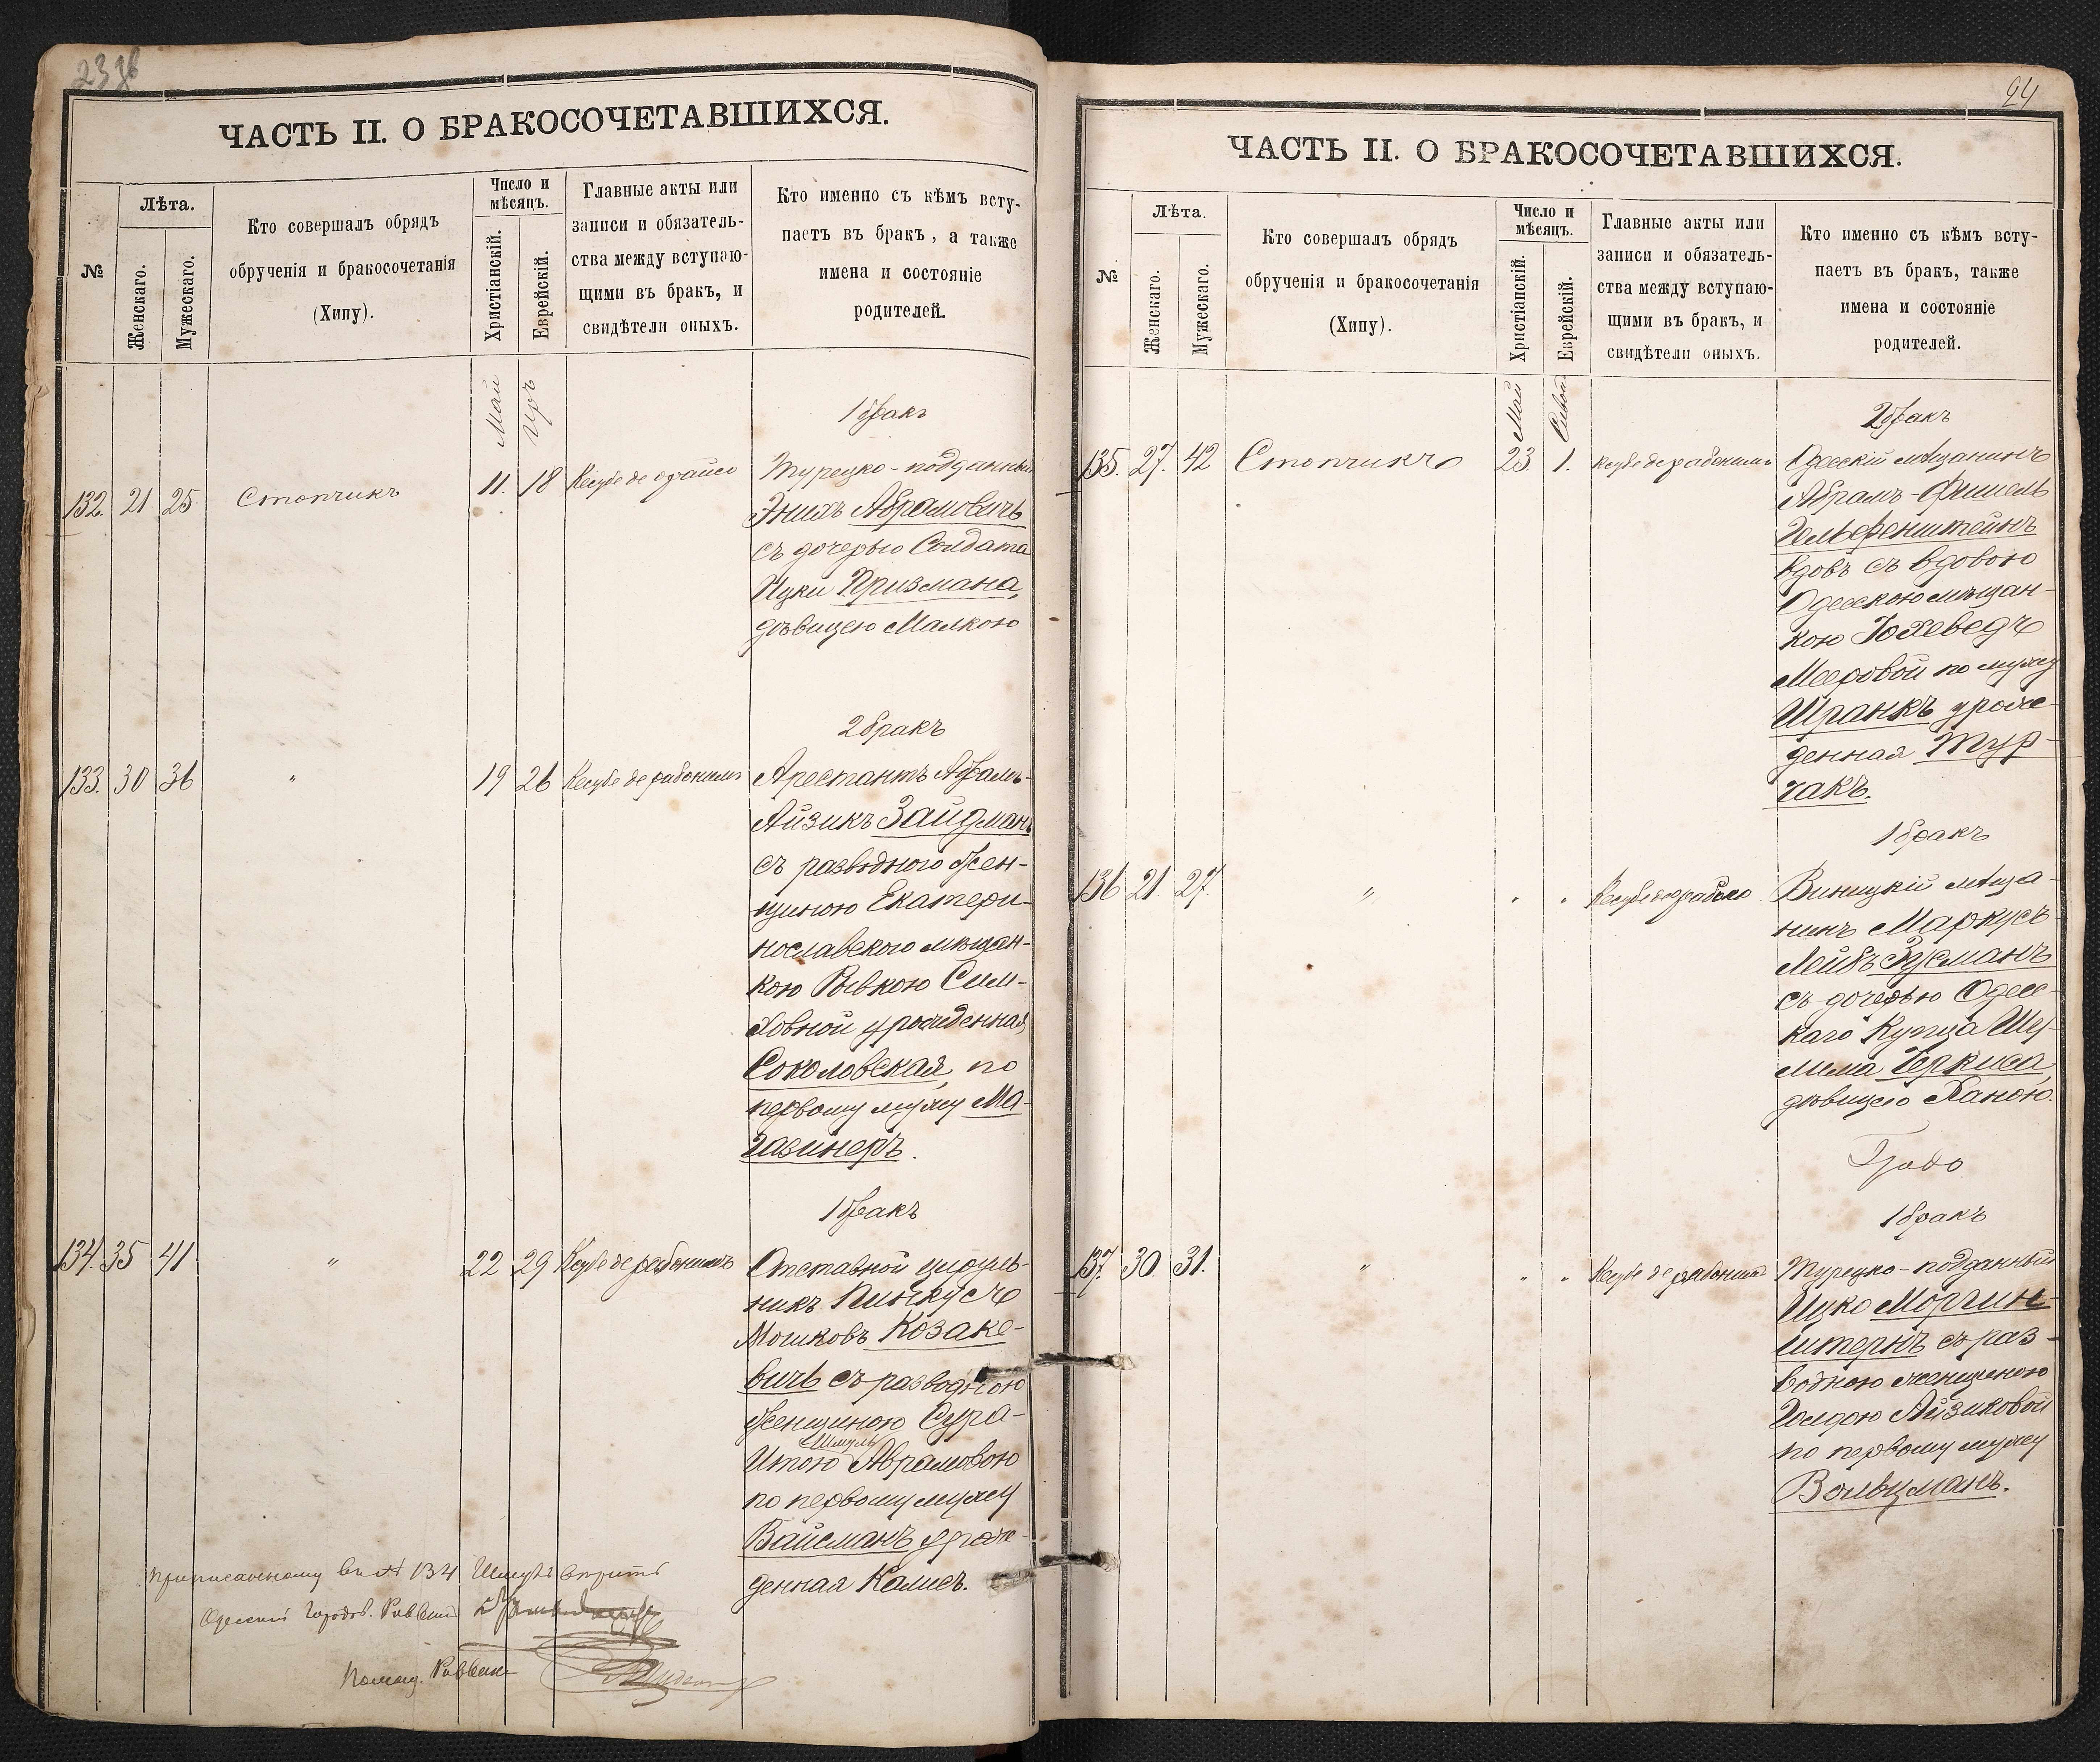 ЧАСТЬ II. О БРАКОСОЧЕТАВШИХСЯ.
№
Лѣта.
Женскаго.
Мужескаго.
Кто совершалъ обрядъ
обрученія и бракосочетанія
(Хипу).
Число и
мѣсяцъ.
Христіанскій.
Еврейскій.
Главные акты или
записи и обязатель-
ства между вступаю-
щими въ бракъ, и
свидѣтели оныхъ.
Кто именно съ кѣмъ всту-
паетъ въ бракъ, а также
имена и состояніе
родителей.
Май
Іръ
1 бракъ
132. 21 25. Стопчикъ 11. 18 Кесубе де
Турецко-подданный
Абрамовичъ
съ дочерью Солдата
Ицки Призмана,
дѣвицею Малкою
2 бракъ
133. 30 36 " 19 26 Кесубе де рабонимъ
Арестантъ Абрамъ-
Айзикъ Зайдманъ
съ разводного жен-
щиною Екатери-
нославского мѣщан-
кою Ривкою Сим-
ховной урожденная
Соколовская, по
первому мужу Ма-
газинеръ.
1 бракъ
134. 35 41 " 22 29 Кесубе де рабонимъ
Отставной цируль-
никъ Пинкусъ
Мошковъ Козаке-
вичъ съ разводною
женщиною Сура-
Шмулъ
Итою Аврамовою
по первому мужу
Вайсманъ урож-
денная Калисъ.
приписанному въ № 134 Шмулъ вѣрить
Одесскій Городов. Раввинъ
Помощ. Раввин-
24
ЧАСТЬ II. О БРАКОСОЧЕТАВШИХСЯ.
№
Лѣта.
Женскаго.
Мужескаго.
Кто совершалъ обрядъ
обрученія и бракосочетанія
(Хипу).
Число и
мѣсяцъ.
Христіанскій.
Еврейскій.
Главные акты или
записи и обязатель-
ства между вступаю-
щими въ бракъ, и
свидѣтели оныхъ.
Кто именно съ кѣмъ всту-
паетъ въ бракъ, также
имена и состояніе
родителей.
Май
Сивонъ
2 бракъ
135. 27. 42 Стопчикъ 23. 1. Кесубе де рабонимъ
Одесскій мѣщанинъ
Абрамъ-Фишель
Гельфенштейнъ
вдовъ съ вдовою
Одесскою мѣщан-
кою Іохеведъ
Мееровой по мужу
Шранкъ уроже-
денная Тур-
чакъ.
1 бракъ
136 21. 27. " " " Кесубе де
Виницкій мѣща-
нинъ Маркусъ-
Лейбъ Зусманъ
съ дочерью Одес-
каго Купца Шу-
лима Черкиса,
дѣвицею Ханою.
1 бракъ
137. 30. 31. " " " Кесубе де рабонимъ
Турецко-подданный
Ицко Морген-
штернъ съ раз-
водною женщиною
Голдою Айзиковой
по первому мужу
Вольцманъ.